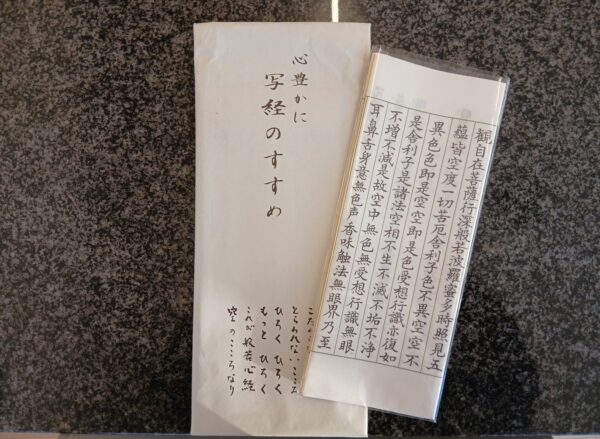 心豊かに
写経のすすめ
こだ
とらわれないこころ
ひろく ひろく
もっと ひろく
これが般若心経
空のこころなり
観自在菩薩行深般若波羅蜜多時照見五
蘊皆空度一切苦厄舎利子色不異空空不
異色色即是空空即是色受想行識亦復如
是舎利子是諸法空相不生不滅不垢不浄
不増不減是故空中無色無受想行識無眼
耳鼻舌身意無色声香味触法無眼界乃至